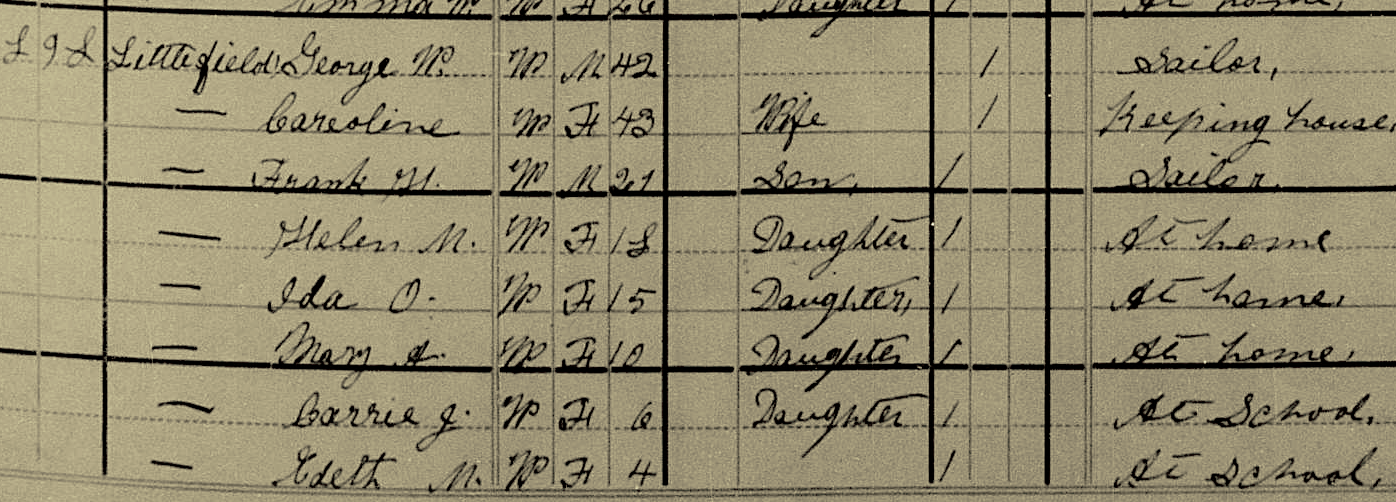 Emma M. W F 26 Daughter 1 At home,
Littlefield George W. W M 42 1 Sailor,
— Careoline W F 43 Wife 1 Keeping house,
— Frank H. W M 21 Son, 1 Sailor.
— Helen M. W F 18 Daughter 1 At home
— Ida O. W F 15 Daughter, 1 At home,
— Mary A. W F 10 Daughter 1 At home,
— Carrie J. W F 6 Daughter 1 At School,
— Edeth M. W F 4 1 At School,